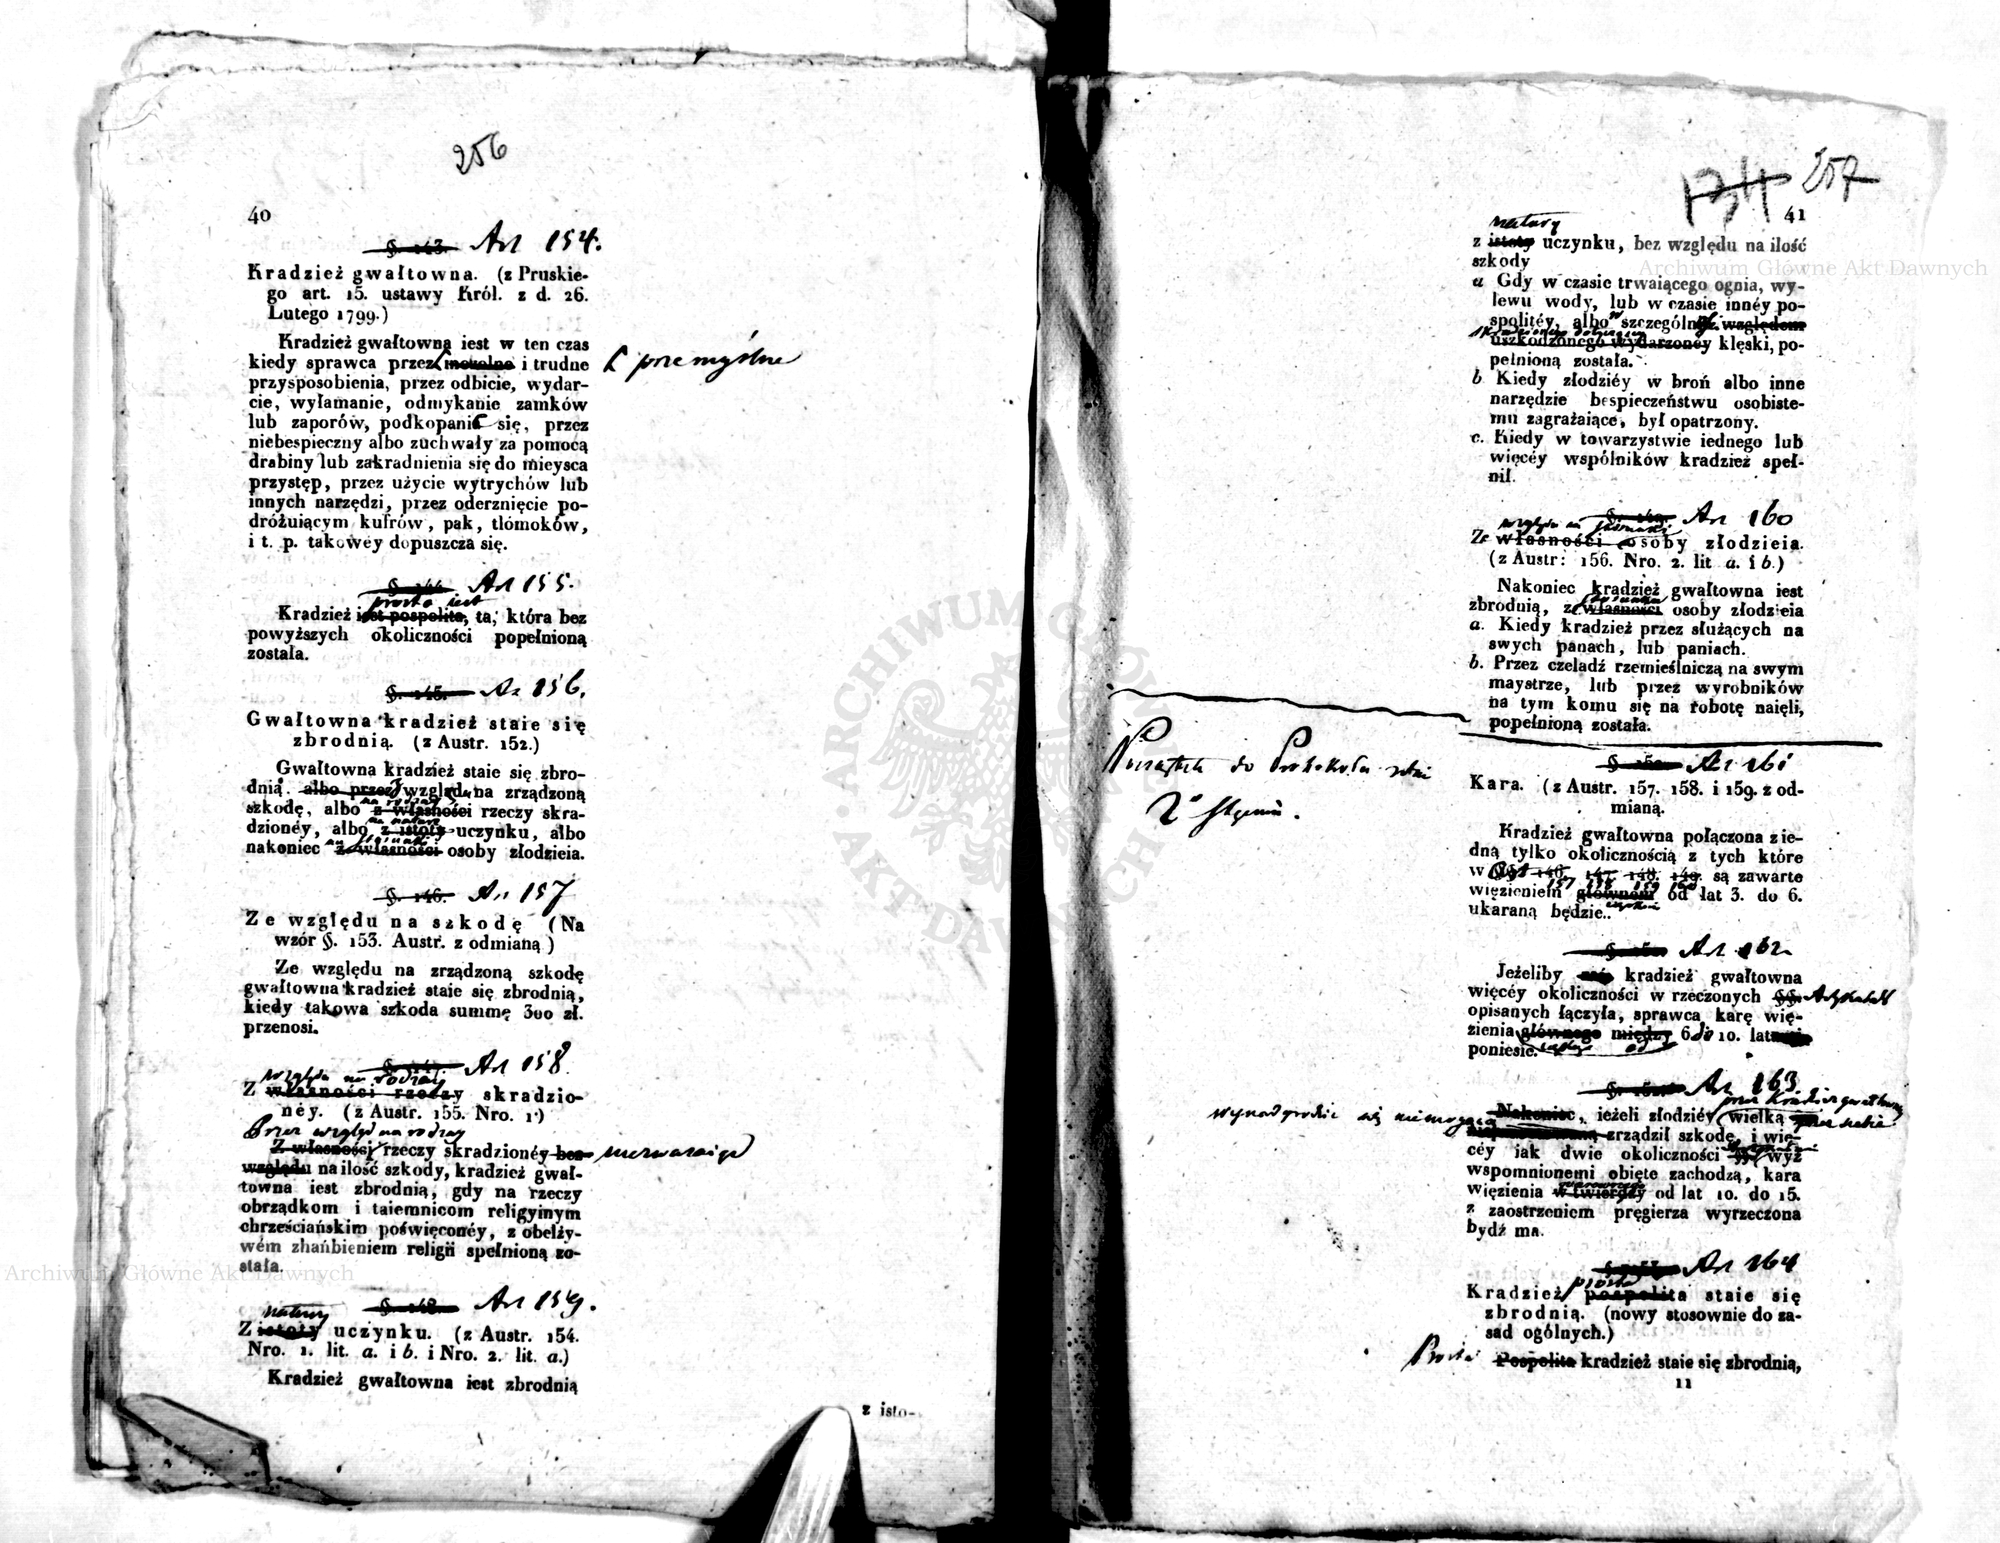 256
40
§. 143. Art 154.
Kradzież gwałtowna. (z Pruskie-
go art. 15. ustawy Król. z d. 26.
Lutego 1799.)
Kradzież gwałtowna iest w ten czas
kiedy sprawca przez i trudne przemyślne
przysposobienia, przez odbicie, wydar-
cie, wyłamanie, odmykanie zamków
lub zaporów, podkopanie się, przez
niebespieczny albo zuchwały za pomocą
drabiny lub zakradnienia się do mieysca
przystęp, przez użycie wytrychów lub
innych narzędzi, przez oderznięcie po-
dróżuiącym kufrów, pak, tłómoków,
i t. p. takowéy dopuszcza się.
§. 144. Art 155.
prosta iest
Kradzież iest pospolita, ta, która bez
powyższych okoliczności popełnioną
została.
§. 145. Art 156.
Gwałtowna kradzież staie się
zbrodnią. (z Austr. 152.)
Gwałtowna kradzież staie się zbro-
dnią albo przez wzgląd na zrządzoną
na rodzay
szkodę, albo z własności rzeczy skra-
na naturę
dzionéy, albo z istoty uczynku, albo
na stosunki
nakoniec z własności osoby złodzieia.
§. 146. Art 157
Ze względu na szkodę (Na
wzór §. 153. Austr. z odmianą)
Ze względu na zrządzoną szkodę
gwałtowna kradzież staie się zbrodnią,
kiedy takowa szkoda summę 300 zł.
przenosi.
§. 147. Art 158
względu na rodzay
Z własności rzeczy skradzio-
néy. (z Austr. 155. Nro. 1.)
Przez wzgląd na rodzay
Z własności rzeczy skradzionéy bez niezważaiąc
względu na ilość szkody, kradzież gwał-
towna iest zbrodnią, gdy na rzeczy
obrządkom i taiemnicom religyinym
chrześciańskim poświęconéy, z obelży-
wém zhańbieniem religii spełnioną zo-
stała.
§. 148. Art 159.
natury
Z istoty uczynku. (z Austr. 154.
Nro. 1. lit. a. i b. i Nro. 2. lit. a.)
Kradzież gwałtowna iest zbrodnią
z isto-
134 257
41
natury
z istoty uczynku, bez względu na ilość
szkody
a Gdy w czasie trwaiącego ognia, wy-
lewu wody, lub w czasie innéy po-
spolitéy, albo w szczególnéy względem
uszkodzonego wydarzonéy klęski, po-
pełnioną została.
b Kiedy złodziéy w broń albo inne
narzędzie bespieczeństwu osobiste-
mu zagrażaiące, był opatrzony.
c. Kiedy w towarzystwie iednego lub
więcéy wspólników kradzież speł-
nił.
§. 149. Art 160
względu na stosunki
Ze własności osoby złodzieia.
(z Austr: 156. Nro. 2. lit a. i b.)
Nakoniec kradzież gwałtowna iest
stosunku
zbrodnią, ze własności osoby złodzieia
a. Kiedy kradzież przez służących na
swych panach, lub paniach.
b. Przez czeladź rzemieślniczą na swym
maystrze, lub przez wyrobników
na tym komu się na robotę naięli,
popełnioną została.
do Protokołu
§. 150. Art 161
Kara. (z Austr. 157. 158. i 159. z od-
mianą.
Kradzież gwałtowna połączona z ie-
dną tylko okolicznością z tych które
w §§. 146. 147. 148. 149. są zawarte
157 158 159 160
więzieniem głównem od lat 3. do 6.
ukaraną będzie.
Art 162
Jeżeliby kradzież gwałtowna
więcéy okoliczności w rzeczonych §§. Artykułach
opisanych łączyła, sprawca karę wię-
zienia głównego między 6 do 10. lat
poniesie.
Art 163
przez kradzież gwałtowną
Nakoniec, ieżeli złodziéy wielką przez siebie
wynadgrodzić się niemogącą zrządził szkodę, i wię-
céy iak dwie okoliczności §§. wyż
wspomnionemi obięte zachodzą, kara
warownego
więzienia w twierdzy od lat 10. do 15.
z zaostrzeniem pręgierza wyrzeczona
bydź ma.
Art 164
prosta
Kradzież pospolita staie się
zbrodnią. (nowy stosownie do za-
sad ogólnych.)
Prosta Pospolita kradzież staie się zbrodnią,
11
ARCHIWUM GŁÓWNE AKT DAWNYCH
Archiwum Główne Akt Dawnych
Archiwum Główne Akt Dawnych